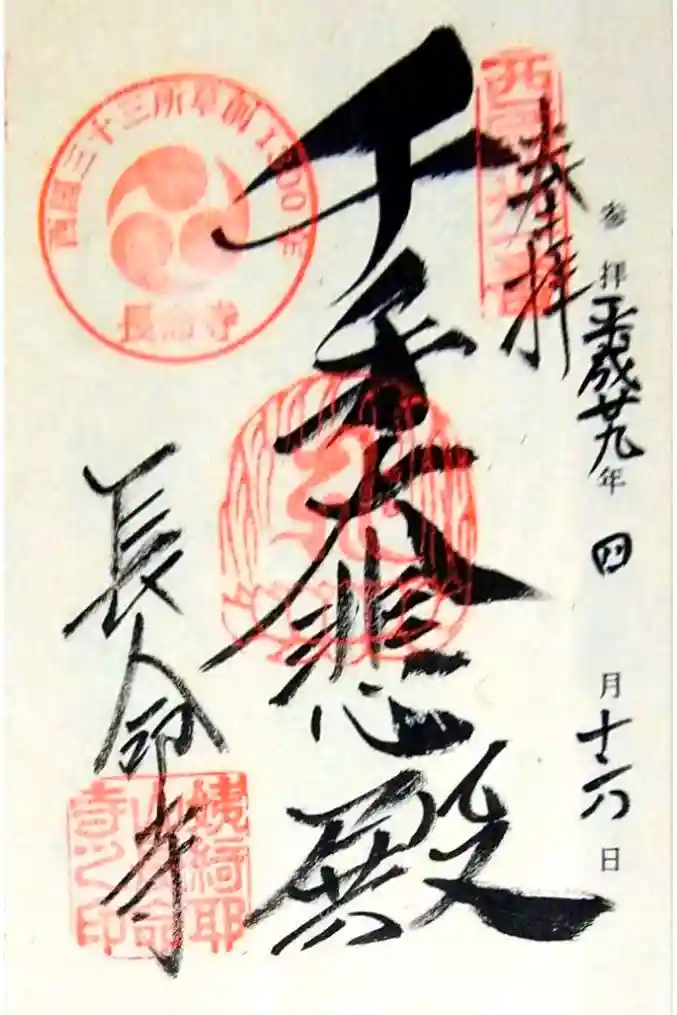 参拝平成廿九年四月十六日
奉拝
西国卅一番
千手大悲殿
西國三十三所草創1300年
長命寺
長命寺
姨綺耶
山長命
寺之印